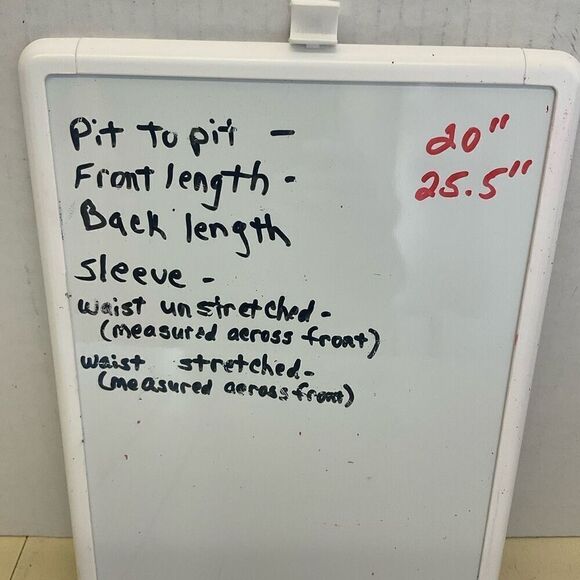 Pit to pit - 20"
Front length - 25.5"
Back length
sleeve -
waist unstretched -
(measured across front)
waist stretched -
(measured across front)